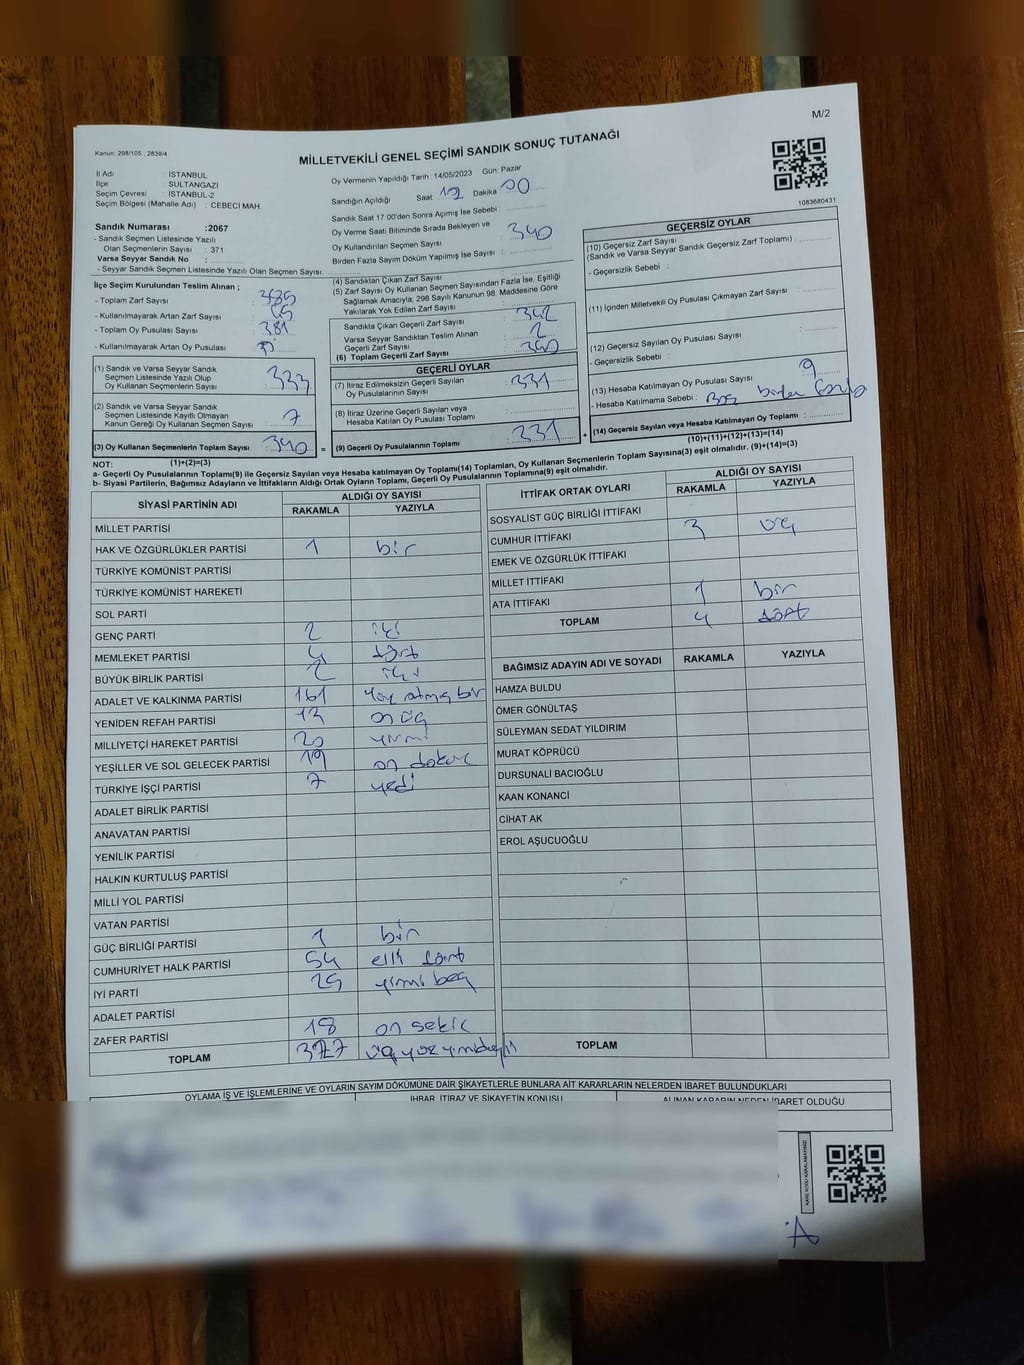 M/2
Kanun: 298/105 , 2839/4
MİLLETVEKİLİ GENEL SEÇİMİ SANDIK SONUÇ TUTANAĞI
İl Adı : İSTANBUL
İlçe : SULTANGAZİ
Seçim Çevresi : İSTANBUL-2
Seçim Bölgesi (Mahalle Adı) : CEBECİ MAH.
Oy Vermenin Yapıldığı Tarih : 14/05/2023 Gün: Pazar
Sandığın Açıldığı Saat: Dakika: 00
Sandık Saat 17:00'den Sonra Açılmış İse Sebebi :
Oy Verme Saati Bitiminde Sırada Bekleyen ve
Oy Kullandırılan Seçmen Sayısı : 340
Birden Fazla Sayım Döküm Yapılmış İse Sayısı :
1083680431
Sandık Numarası :2067
- Sandık Seçmen Listesinde Yazılı
Olan Seçmenlerin Sayısı : 371
Varsa Seyyar Sandık No :
- Seyyar Sandık Seçmen Listesinde Yazılı Olan Seçmen Sayısı:
İlçe Seçim Kurulundan Teslim Alınan ;
- Toplam Zarf Sayısı : 385
- Kullanılmayarak Artan Zarf Sayısı :
- Toplam Oy Pusulası Sayısı : 381
- Kullanılmayarak Artan Oy Pusulası :
(1) Sandık ve Varsa Seyyar Sandık
Seçmen Listesinde Yazılı Olup
Oy Kullanan Seçmenlerin Sayısı : 333
(2) Sandık ve Varsa Seyyar Sandık
Seçmen Listesinde Kayıtlı Olmayan
Kanun Gereği Oy Kullanan Seçmen Sayısı : 7
(3) Oy Kullanan Seçmenlerin Toplam Sayısı : 340 =
(1)+(2)=(3)
(4) Sandıktan Çıkan Zarf Sayısı :
(5) Zarf Sayısı Oy Kullanan Seçmen Sayısından Fazla İse, Eşitliği
Sağlamak Amacıyla, 298 Sayılı Kanunun 98. Maddesine Göre
Yakılarak Yok Edilen Zarf Sayısı :
Sandıkta Çıkan Geçerli Zarf Sayısı : 342
Varsa Seyyar Sandıktan Teslim Alınan
Geçerli Zarf Sayısı : 2
(6) Toplam Geçerli Zarf Sayısı : 340
GEÇERLİ OYLAR
(7) İtiraz Edilmeksizin Geçerli Sayılan
Oy Pusulalarının Sayısı : 331
(8) İtiraz Üzerine Geçerli Sayılan veya
Hesaba Katılan Oy Pusulası Toplamı :
(9) Geçerli Oy Pusulalarının Toplamı : 331 +
GEÇERSİZ OYLAR
(10) Geçersiz Zarf Sayısı
(Sandık ve Varsa Seyyar Sandık Geçersiz Zarf Toplamı) :
- Geçersizlik Sebebi :
(11) İçinden Milletvekili Oy Pusulası Çıkmayan Zarf Sayısı :
(12) Geçersiz Sayılan Oy Pusulası Sayısı :
- Geçersizlik Sebebi :
(13) Hesaba Katılmayan Oy Pusulası Sayısı : 9
- Hesaba Katılmama Sebebi : birden fazla
(14) Geçersiz Sayılan veya Hesaba Katılmayan Oy Toplamı :
(10)+(11)+(12)+(13)=(14)
NOT:
a- Geçerli Oy Pusulalarının Toplamı(9) ile Geçersiz Sayılan veya Hesaba katılmayan Oy Toplamı(14) Toplamları, Oy Kullanan Seçmenlerin Toplam Sayısına(3) eşit olmalıdır. (9)+(14)=(3)
b- Siyasi Partilerin, Bağımsız Adayların ve İttifakların Aldığı Ortak Oyların Toplamı, Geçerli Oy Pusulalarının Toplamına(9) eşit olmalıdır.
SİYASİ PARTİNİN ADI ALDIĞI OY SAYISI
RAKAMLA YAZIYLA
MİLLET PARTİSİ
HAK VE ÖZGÜRLÜKLER PARTİSİ 1 bir
TÜRKİYE KOMÜNİST PARTİSİ
TÜRKİYE KOMÜNİST HAREKETİ
SOL PARTİ
GENÇ PARTİ 2 iki
MEMLEKET PARTİSİ 4 dört
BÜYÜK BİRLİK PARTİSİ 2 iki
ADALET VE KALKINMA PARTİSİ 161 yüz atmış bir
YENİDEN REFAH PARTİSİ 13 on üç
MİLLİYETÇİ HAREKET PARTİSİ 20 yirmi
YEŞİLLER VE SOL GELECEK PARTİSİ 19 on dokuz
TÜRKİYE İŞÇİ PARTİSİ 7 yedi
ADALET BİRLİK PARTİSİ
ANAVATAN PARTİSİ
YENİLİK PARTİSİ
HALKIN KURTULUŞ PARTİSİ
MİLLİ YOL PARTİSİ
VATAN PARTİSİ
GÜÇ BİRLİĞİ PARTİSİ 1 bir
CUMHURİYET HALK PARTİSİ 54 elli dört
İYİ PARTİ 25 yirmi beş
ADALET PARTİSİ
ZAFER PARTİSİ 18 on sekiz
TOPLAM 327
İTTİFAK ORTAK OYLARI ALDIĞI OY SAYISI
RAKAMLA YAZIYLA
SOSYALİST GÜÇ BİRLİĞİ İTTİFAKI
CUMHUR İTTİFAKI 3 üç
EMEK VE ÖZGÜRLÜK İTTİFAKI
MİLLET İTTİFAKI
ATA İTTİFAKI 1 bir
TOPLAM 4 dört
BAĞIMSIZ ADAYIN ADI VE SOYADI RAKAMLA YAZIYLA
HAMZA BULDU
ÖMER GÖNÜLTAŞ
SÜLEYMAN SEDAT YILDIRIM
MURAT KÖPRÜCÜ
DURSUNALİ BACIOĞLU
KAAN KONANCİ
CİHAT AK
EROL AŞUCUOĞLU
TOPLAM
OYLAMA İŞ VE İŞLEMLERİNE VE OYLARIN SAYIM DÖKÜMÜNE DAİR ŞİKAYETLERLE BUNLARA AİT KARARLARIN NELERDEN İBARET BULUNDUKLARI
İHBAR, İTİRAZ VE ŞİKAYETİN KONUSU
ALINAN KARARIN NEDEN İBARET OLDUĞU